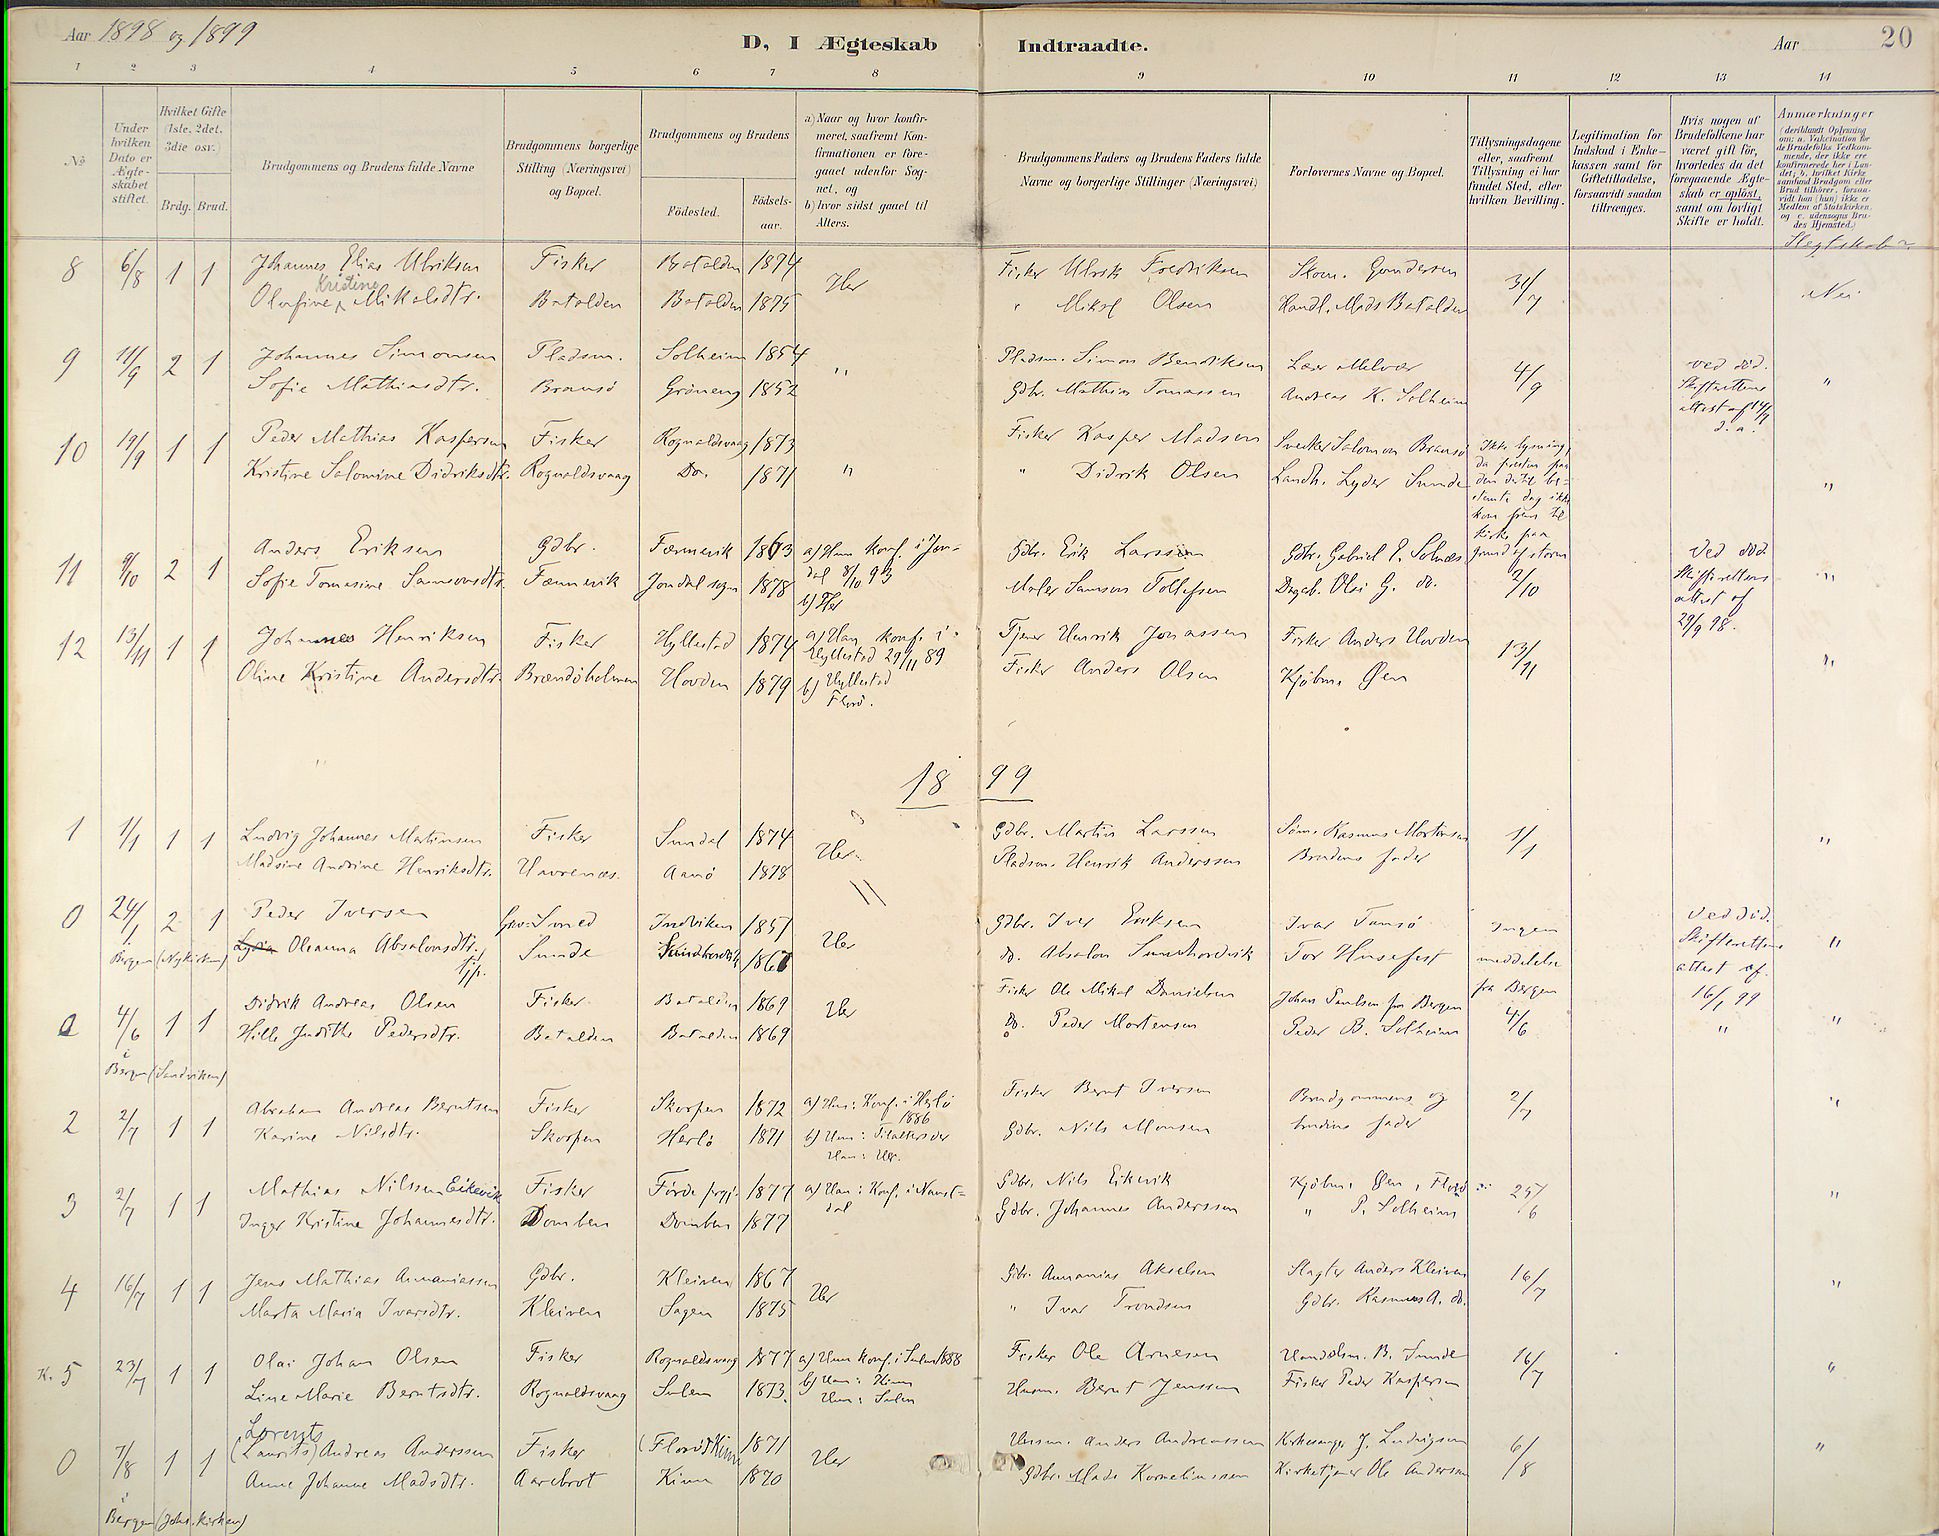 Aar 1898 og 1899
D, I Ægteskab Indtraadte.
Aar 20
1 2 3 4 5 6 7 8 9 10 11 12 13 14
No
Under hvilken Dato er Ægteskabet stiftet.
Hvilket Gifte (1ste, 2det, 3die osv.)
Brdg. Brud.
Brudgommens og Brudens fulde Navne
Brudgommens borgerlige Stilling (Næringsvei) og Bopæl.
Brudgommens og Brudens
Fødested.
Fødselsaar.
a) Naar og hvor konfirmeret, saafremt Konfirmationen er foregaaet udenfor Sognet, og
b) hvor sidst gaaet til Alters.
Brudgommens Faders og Brudens Faders fulde Navne og borgerlige Stillinger (Næringsvei)
Forlovernes Navne og Bopæl.
Tillysningsdagene eller, saafremt Tillysning ei har fundet Sted, efter hvilken Bevilling.
Legitimation for Indskud i Enkekassen samt for Giftetilladelse, forsaavidt saadan tiltrænges.
Hvis nogen af Brudefolkene har været gift før, hvorledes da det foregaaende Ægteskab er opløst, samt om lovligt Skifte er holdt.
Anmærkninger
(deriblandt Oplysning om: a. Vaccination for de Brudefolks Vedkommende, der ikke ere konfirmerede her i Landet; b. hvilket Kirkesamfund Brudgom eller Brud tilhører, forsaavidt han (hun) ikke er Medlem af Statskirken, og c. udensogns Brudes Hjemsted.)
Slegtskab?
8 6/8 1 1 Johannes Elias Ulriksen Fisker Batalden 1874 Her Fisker Ulrik Fredriksen Skom. Gundersen 31/7 Nei
Kristine
Olufine Mikalsdtr. Batalden Batalden 1875 " Mikal Olsen Handl. Mads Batalden
9 11/9 2 1 Johannes Simonsen Pladsm. Solheim 1854 " Pladsm. Simon Bendiksen Melvær 4/9 ved død. "
Sofie Mathiasdtr. Bransø Grøneng 1852 Gbr. Mathias Tomassen Andreas K. Solheim Skifterettens attest af 14/9 d. a.
10 19/9 1 1 Peder Mathias Kaspersen Fisker Rognaldsvaag 1873 " Fisker Kasper Madsen Salomon Bransø Ikke lysning,
Kristine Salomine Didriksdtr. Rognaldsvaag Do. 1871 " Didrik Olsen Landh. Lyder Sunde da presten paa "
den dertil be-
stemte dag ikke
kom frem til
kirke paa
grund af storm
11 9/10 2 1 Anders Eriksen Gdbr. Færmevik 1863 a) Hun konf. i Jon- Gdbr. Erik Larssen Gdbr. Gabriel E. Solnæs 2/10 Ved død. "
Sofie Tomasine Samsonsdtr. Færmevik Jondal sogn 1878 dal 8/10 93 Maler Samson Tollefsen Dagarb. Olai G. do. Skifterettens
b) Her attest af 29/9 98.
12 13/11 1 1 Johannes Henriksen Fisker Hyllestad 1874 a) Han konf. i Tjener Henrik Jonassen Fisker Anders Hovden 13/11 "
Oline Kristine Andersdtr. Brandøholmen Hovden 1879 Hyllestad 29/11 89 Fisker Anders Olsen Kjøbm. Øen
b) Hyllestad
Florø.
1899
1 1/1 1 1 Ludvig Johannes Martinsen Fisker Sundal 1874 Her Gdbr. Martin Larssen Rasmus Mortensen 1/1 "
Madsine Andrine Henriksdtr. Havrenæs. Aamø 1878 Pladsm. Henrik Anderssen Brudens fader
0 24/1 2 1 Peder Iversen Smed Indviken 1851 Her Gdbr. Iver Eriksen Ivar Tansø Ingen Ved død. "
Lydia Oleanna Absalonsdtr. Sunde Sundhordvik 1867 do. Absalon Sundhordvik Tor Husefest meddelelse Skifterettens
Bergen (Nykirken) tjp. fra Bergen attest af 16/1 99
0 4/6 1 1 Didrik Andreas Olsen Fisker Batalden 1869 Her Fisker Ole Mikal Danielsen Johan Paulsen fra Bergen 4/6 " "
Hille Judithe Pedersdtr. Batalden Batalden 1869 do. Peder Mortensen Peder B. Solheim
i Bergen (Sandviken)
2 2/7 1 1 Abraham Andreas Berntsen Fisker Skorpen 1872 a) Hun: Konf. i Herlø 1886 Fisker Bernt Iversen Brudgommens og 2/7 "
Karine Nilsdtr. Skorpen Herlø 1871 b) Hun: Tilalters der Gdbr. Nils Monsen brudens fader
Han: Her.
3 2/7 1 1 Mathias Nilssen Eikevik Fisker Førde prgj. 1877 a) Han: Konf. i Naust- Gdbr. Nils Eikevik Kjøbm. Øen, Florø 25/6 "
Inger Kristine Johannesdtr. Domben Domben 1877 dal Gdbr. Johannes Anderssen " P. Solheim
4 16/7 1 1 Jens Mathias Ananiassen Gdbr. Kleiven 1867 Her Gbr. Annanias Akselsen Slagter Anders Kleiven 16/7 "
Marta Maria Ivarsdtr. Kleiven Sagen 1875 " Ivar Trondsen Gdbr. Rasmus A. do.
K. 5 23/7 1 1 Olai Johan Olsen Fisker Rognaldsvaag 1877 a) Hun konf. i Sulen 1888 Fisker Ole Arnesen Handelsm. B. Sunde 16/7 "
Line Marie Berntsdtr. Rognaldsvaag Sulen 1873. b) Han: Kinn Husm. Bernt Jenssen Fisker Peder Kaspersen
Hun: Sulen
Lorents
0 7/8 1 1 (Laurits) Andreas Anderssen Fisker (Florø) Kinn 1871 Her Husm. Anders Andreassen Kirkesanger J. Ludvigsen 6/8 "
Anne Johanne Madsdtr. Aarebrot Kinn 1870 Gdbr. Mads Korneliussen Kirketjener Ole Andersen
i Bergen (Johs. kirken)